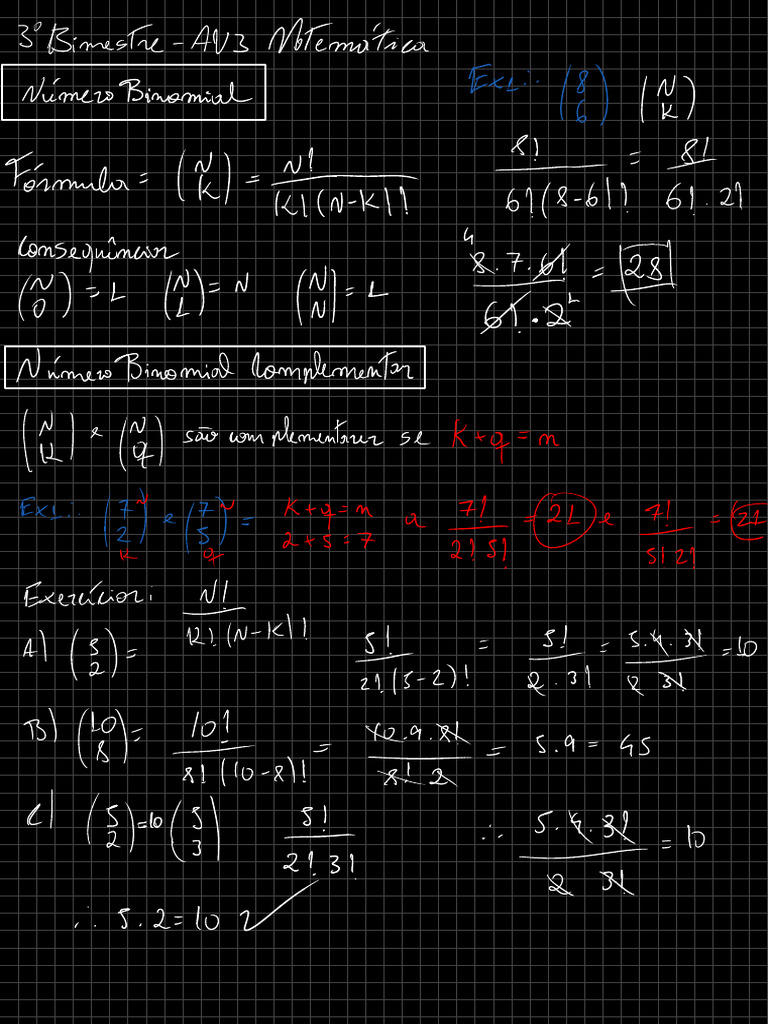 3º Bimestre - AV3 Matemática
Número Binomial
Ex1:. (8 6) (N K)
Fórmula = (N K) = N! / K!(N-K)!
8! / 6!(8-6)! = 8! / 6! . 2!
8.7.6! / 6! . 2 = 28
4 1
Consequências
(N 0) = 1 (N 1) = N (N N) = 1
Número Binomial Complementar
(N K) e (N q) são complementares se K+q=n
Ex1:. (7 2) e (7 5) = K+q=n
N K N q
2+5=7
7! / 2!5! = 21 e 7! / 5!2! = 21
Exercícios: N! / K!(N-K)!
A) (5 2) = 5! / 2!(5-2)! = 5! / 2.3! = 5.4.3! / 2 3! = 10
B) (10 8) = 10! / 8!(10-8)! = 10.9.8! / 8! 2 = 5.9 = 45
C) (5 2) = 10 (5 3) 5! / 2!3! ∴ 5.4.3! / 2 3! = 10
∴ 5.2=10 ✓